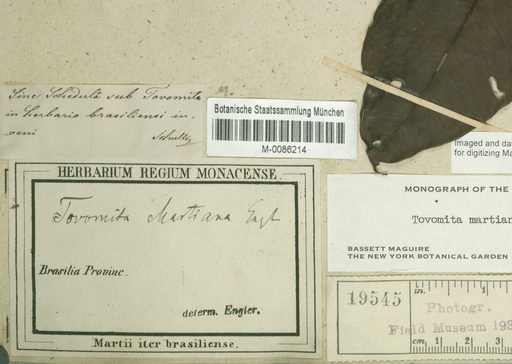 Sine Schedulâ sub Tovomita
in herbario brasiliensi in,
veni
Schultes
Botanische Staatssammlung München
M-0086214
HERBARIUM REGIUM MONACENSE.
Tovomita Martiana Engl
Brasilia Provinc.
determ. Engler.
Martii iter brasiliense.
Imaged and da
for digitizing Ma
MONOGRAPH OF THE
Tovomita martian
BASSETT MAGUIRE
THE NEW YORK BOTANICAL GARDEN
19545
in. 1
Photogr.
Field Museum 193
cm 1 2 3